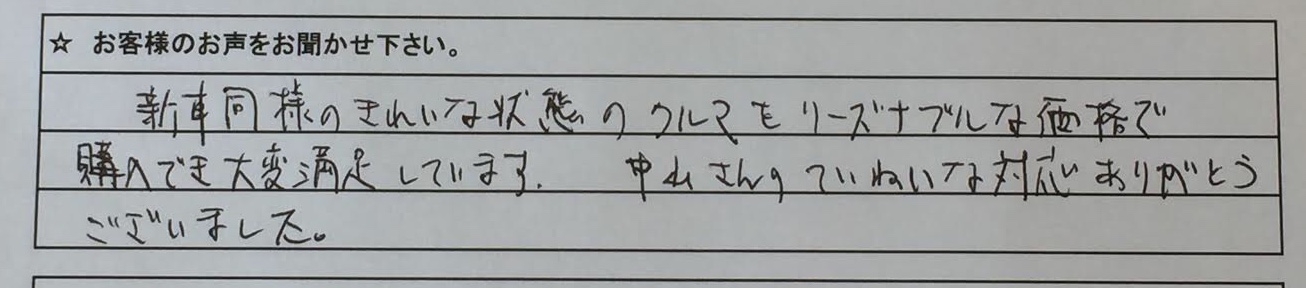 ☆ お客様のお声をお聞かせ下さい。
新車同様のきれいな状態のクルマをリーズナブルな価格で
購入でき大変満足しています. 中山さんのていねいな対応ありがとう
ございました。